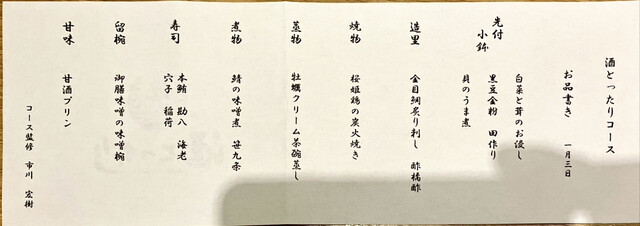 酒とったりコース
お品書き 一月三日
先付 白菜と茸のお浸し
小鉢 黒豆金粉 田作り
貝のうま煮
造里 金目鯛炙り刺し 酢橘酢
焼物 桜姫鶏の炭火焼き
蒸物 牡蠣クリーム茶碗蒸し
煮物 鯖の味噌煮 笹九条
寿司 本鮪 勘八 海老
穴子 稲荷
留椀 御膳味噌の味噌椀
甘味 甘酒プリン
コース監修 市川 宏樹